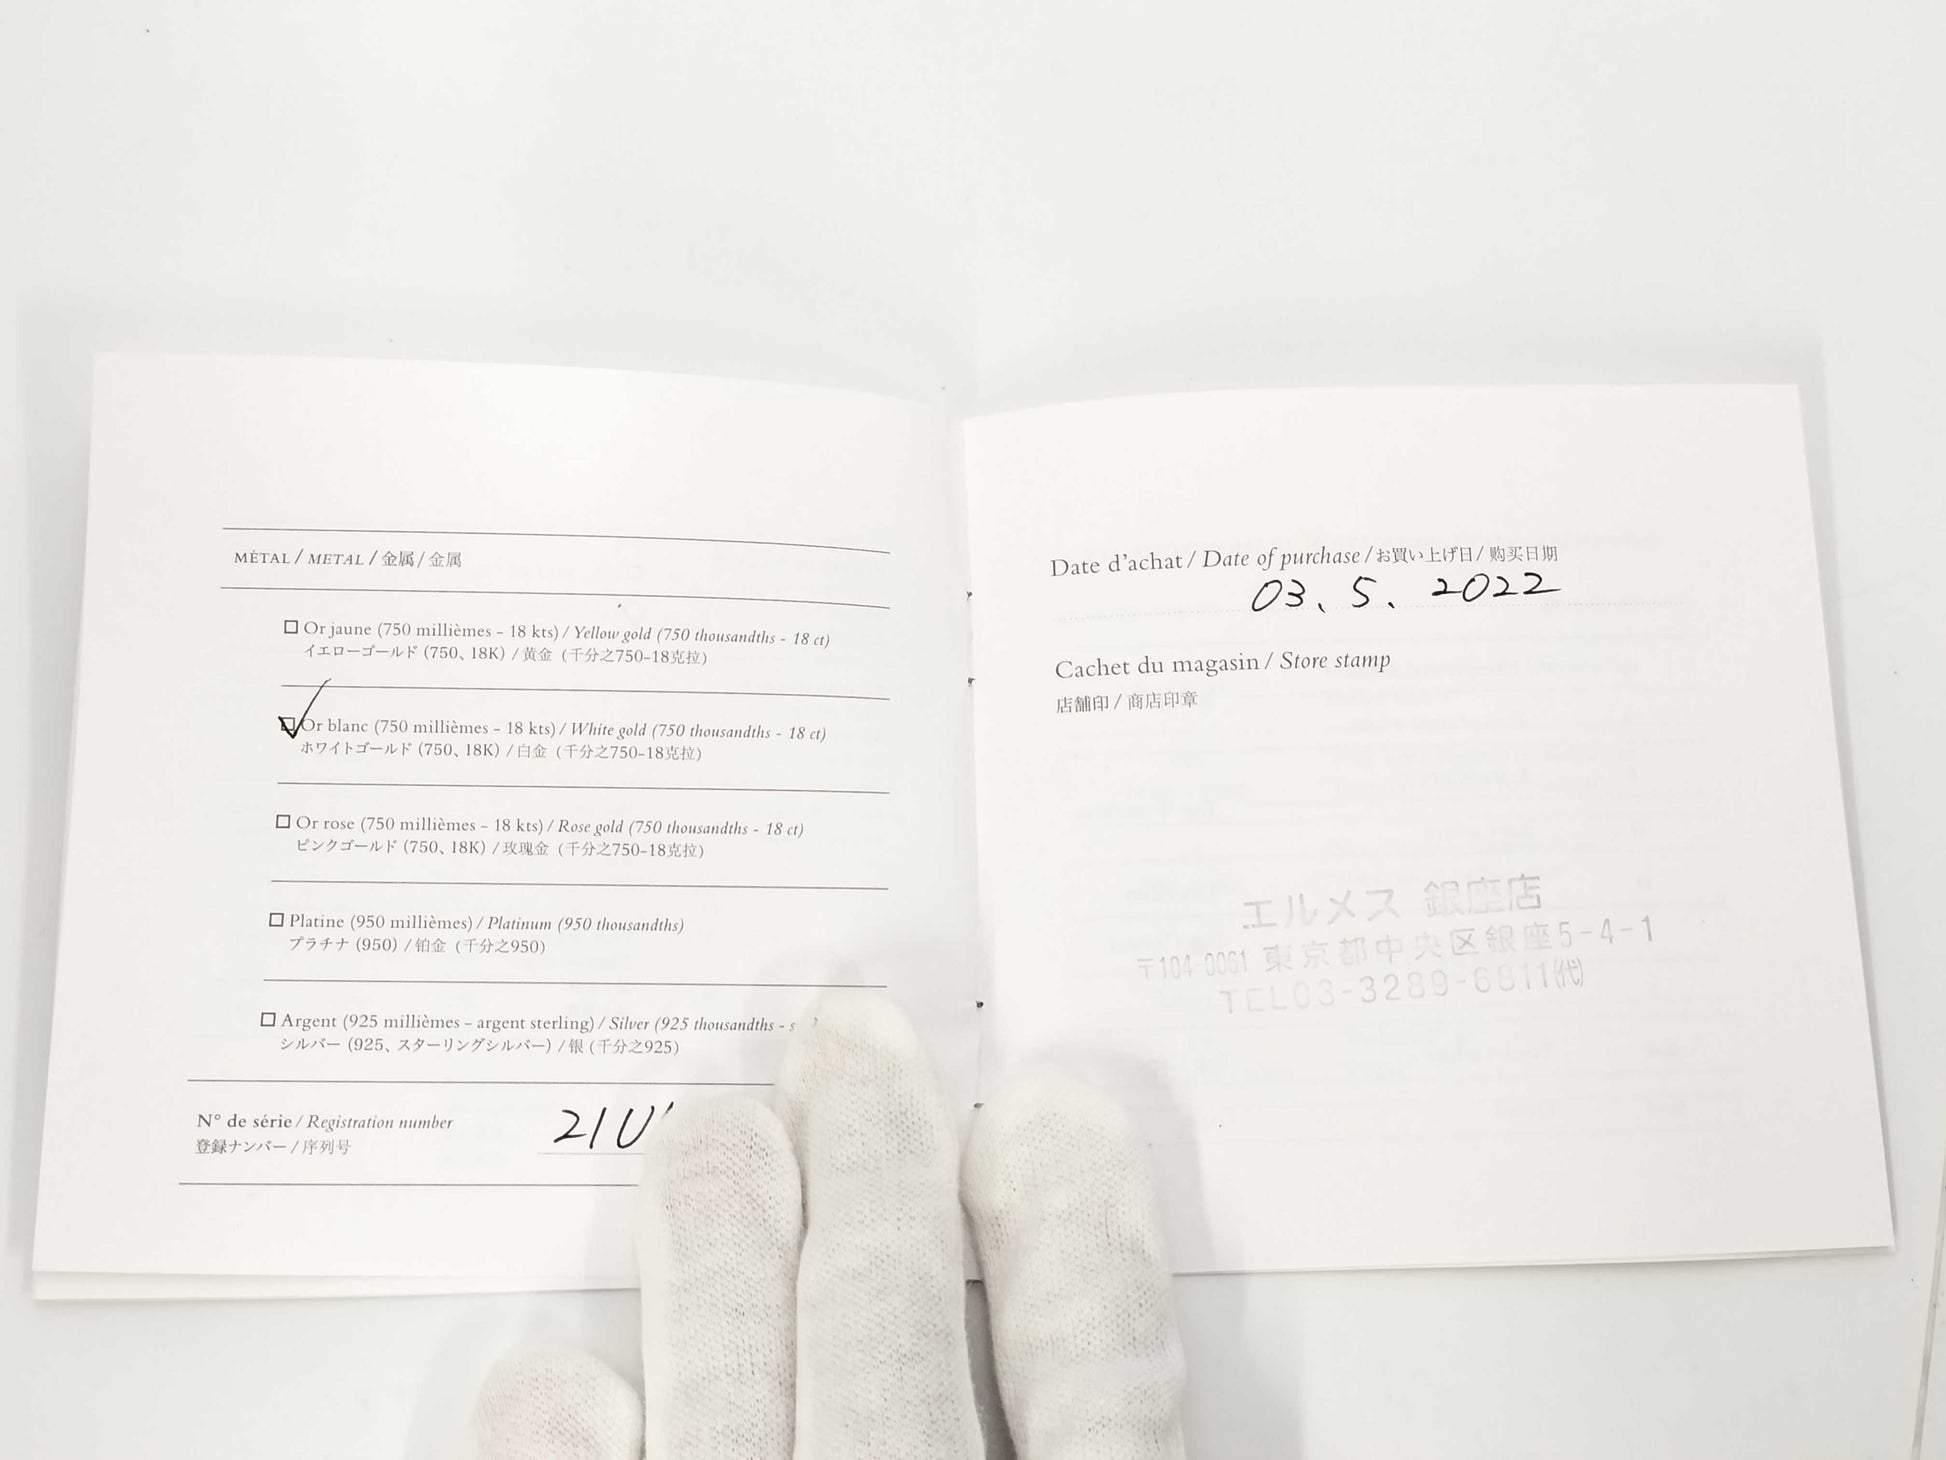 MÉTAL / METAL / 金属 / 金属
Or jaune (750 millièmes - 18 kts) / Yellow gold (750 thousandths - 18 ct)
イエローゴールド (750、18K) / 黄金 (千分之750-18克拉)
Or blanc (750 millièmes - 18 kts) / White gold (750 thousandths - 18 ct)
ホワイトゴールド (750、18K) / 白金 (千分之750-18克拉)
Or rose (750 millièmes - 18 kts) / Rose gold (750 thousandths - 18 ct)
ピンクゴールド (750、18K) / 玫瑰金 (千分之750-18克拉)
Platine (950 millièmes) / Platinum (950 thousandths)
プラチナ (950) / 铂金 (千分之950)
Argent (925 millièmes - argent sterling) / Silver (925 thousandths - s
シルバー (925、スターリングシルバー) / 银 (千分之925)
N° de série / Registration number
21U
登録ナンバー / 序列号
Date d'achat / Date of purchase / お買い上げ日 / 购买日期
03. 5. 2022
Cachet du magasin / Store stamp
店舗印 / 商店印章
エルメス 銀座店
〒104-0061 東京都中央区銀座5-4-1
TEL03-3289-6811(代)